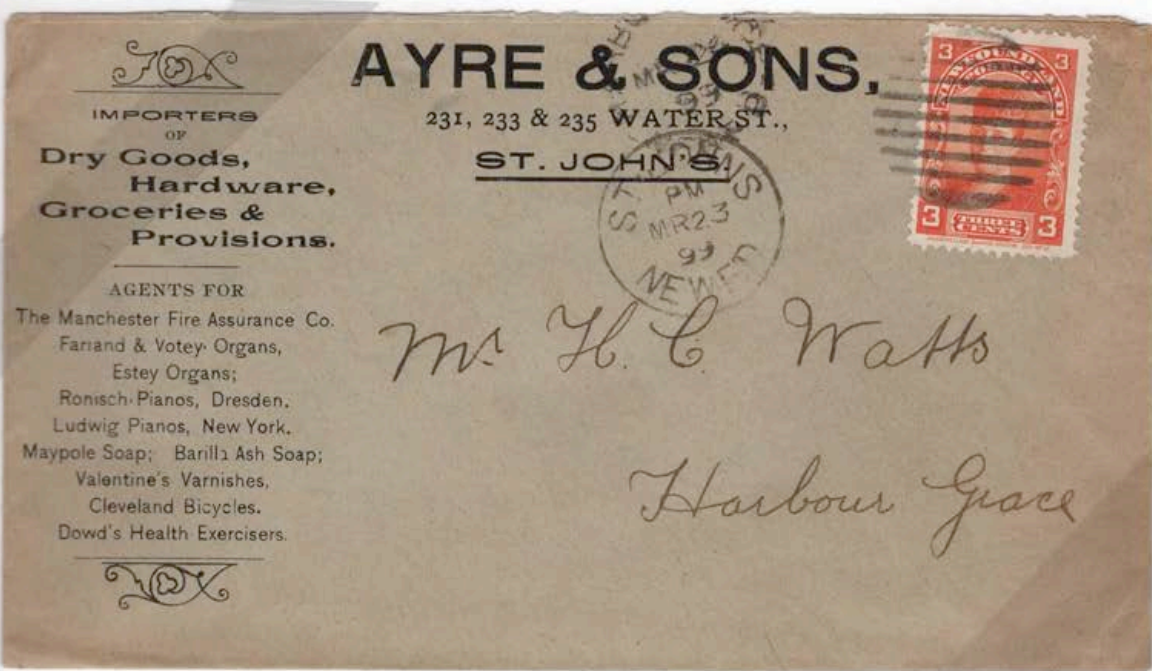 AYRE & SONS,
231, 233 & 235 WATER ST.,
ST. JOHN'S.
IMPORTERS
OF
Dry Goods,
Hardware,
Groceries &
Provisions.
AGENTS FOR
The Manchester Fire Assurance Co.
Farrand & Votey Organs,
Estey Organs;
Ronisch Pianos, Dresden.
Ludwig Pianos, New York.
Maypole Soap; Barilla Ash Soap;
Valentine's Varnishes,
Cleveland Bicycles.
Dowd's Health Exercisers.
ST. JOHN'S
PM
MR 23
99
NEWF'D
3 3
NEWFOUNDLAND
POSTAGE
3 THREE 3
CENTS
Mr H. C. Watts
Harbour Grace